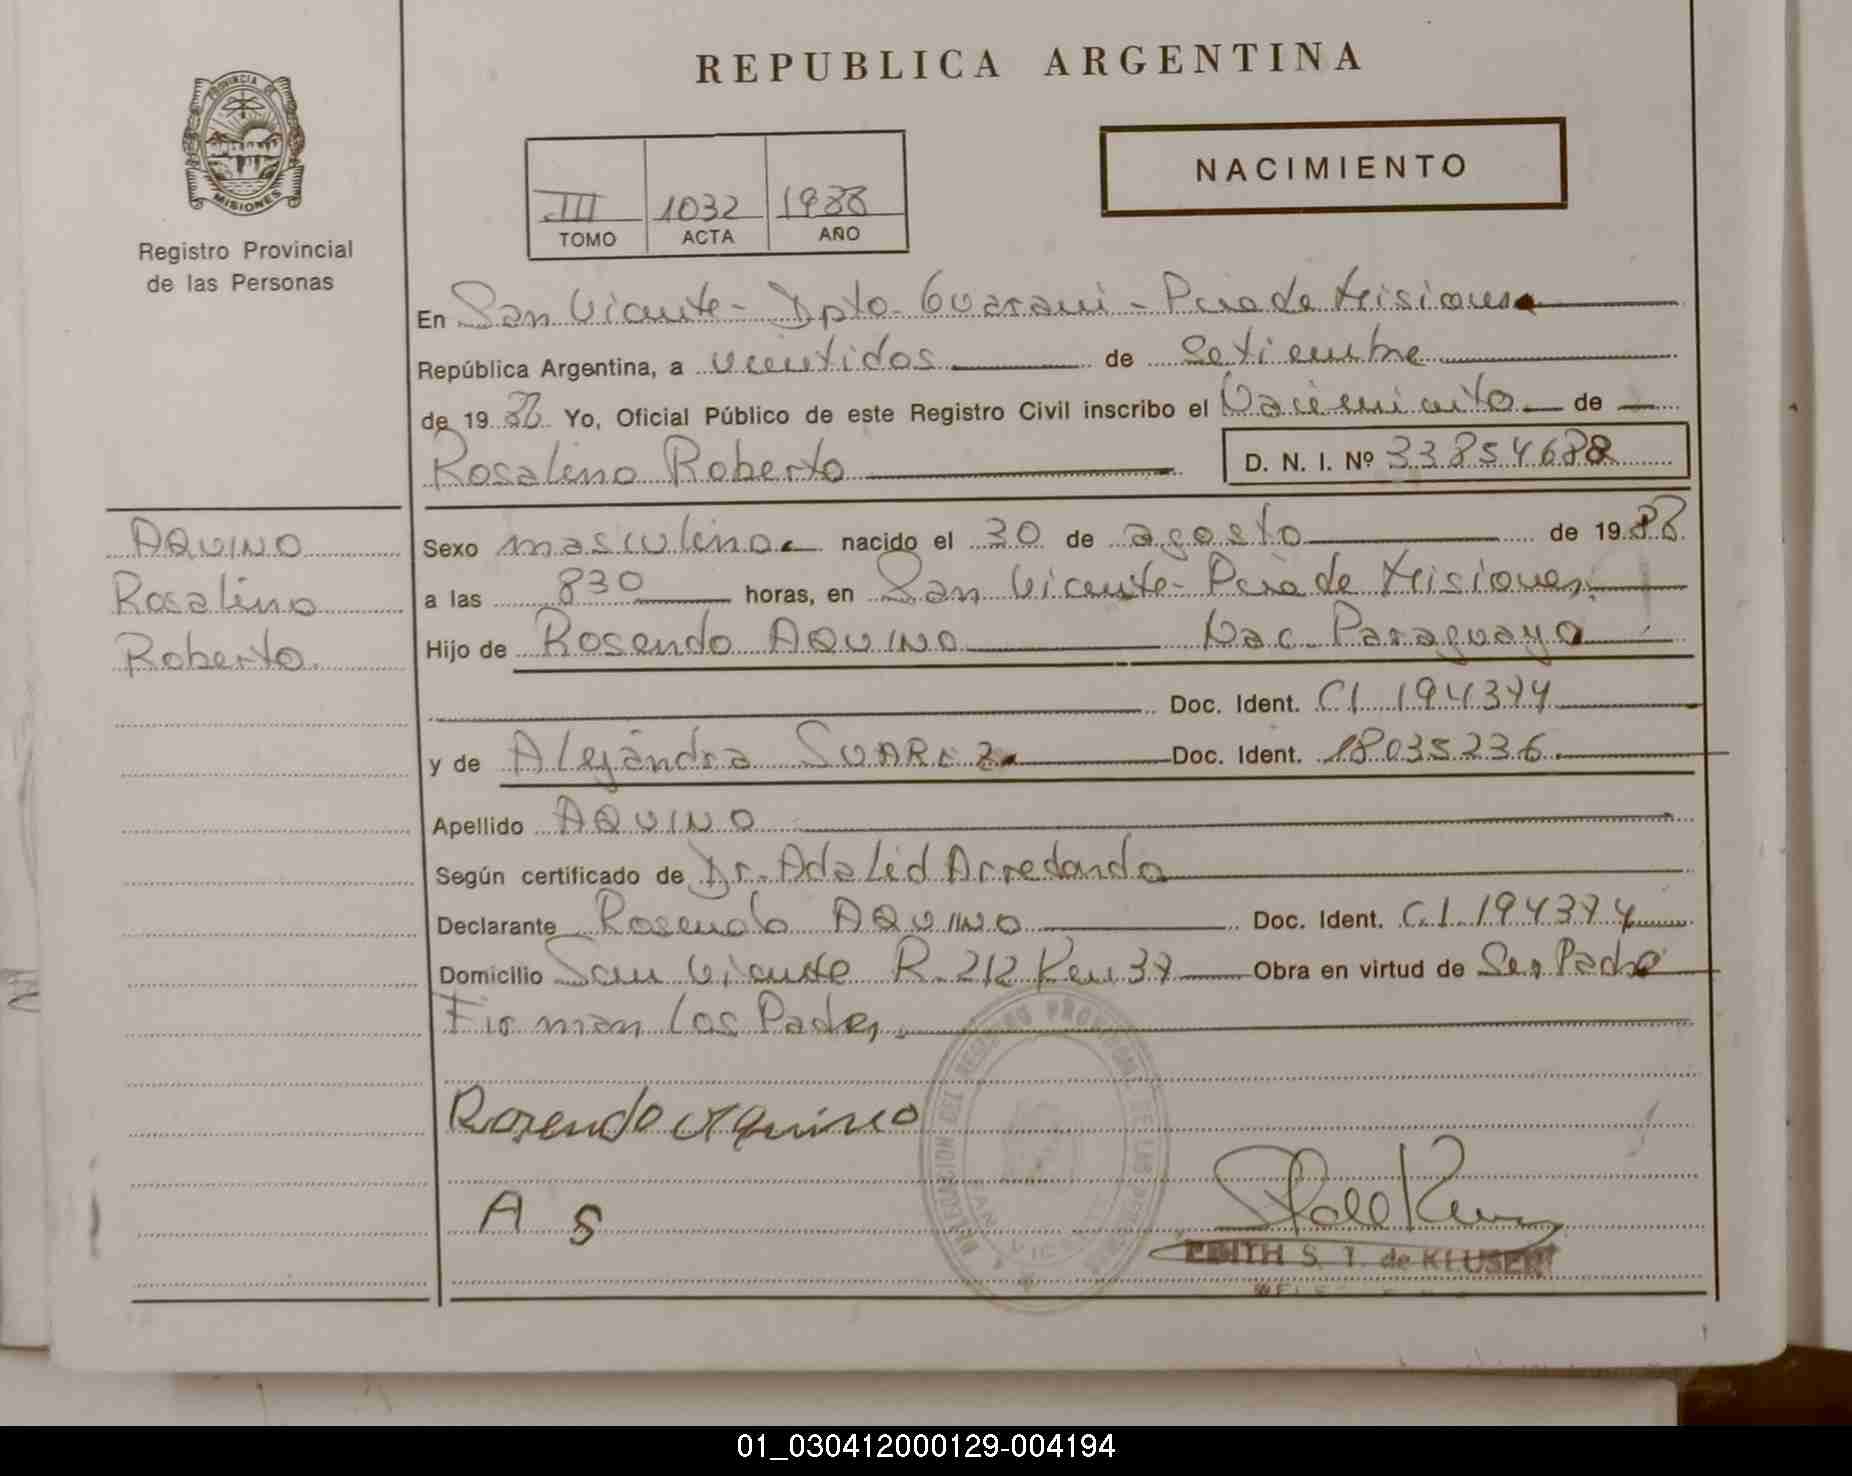 REPUBLICA ARGENTINA
PROVINCIA DE
MISIONES
Registro Provincial
de las Personas
NACIMIENTO
III 1032 1988
TOMO ACTA AÑO
En San Vicente - Dpto. Guarani - Pcia de Misiones
República Argentina, a veintidos de Setiembre
de 1988 Yo, Oficial Público de este Registro Civil inscribo el Nacimiento de
Rosalino Roberto D. N. I. Nº 33854688
AQUINO
Rosalino
Roberto.
Sexo masculino. nacido el 30 de agosto de 1988
a las 830 horas, en San Vicente - Pcia de Misiones.
Hijo de Rosendo AQUINO Nac. Paraguaya
Doc. Ident. CI 194374
y de Alejandra SUAREZ Doc. Ident. 18035236
Apellido AQUINO
Según certificado de Dr. Adalid Arredondo
Declarante Rosendo AQUINO Doc. Ident. C.I. 194374
Domicilio San Vicente R. 212 Km 37 Obra en virtud de Ser Padre
Firman los Padres
Rosendo Aquino
A S
EDITH S. T. de KLUSENER
01_030412000129-004194